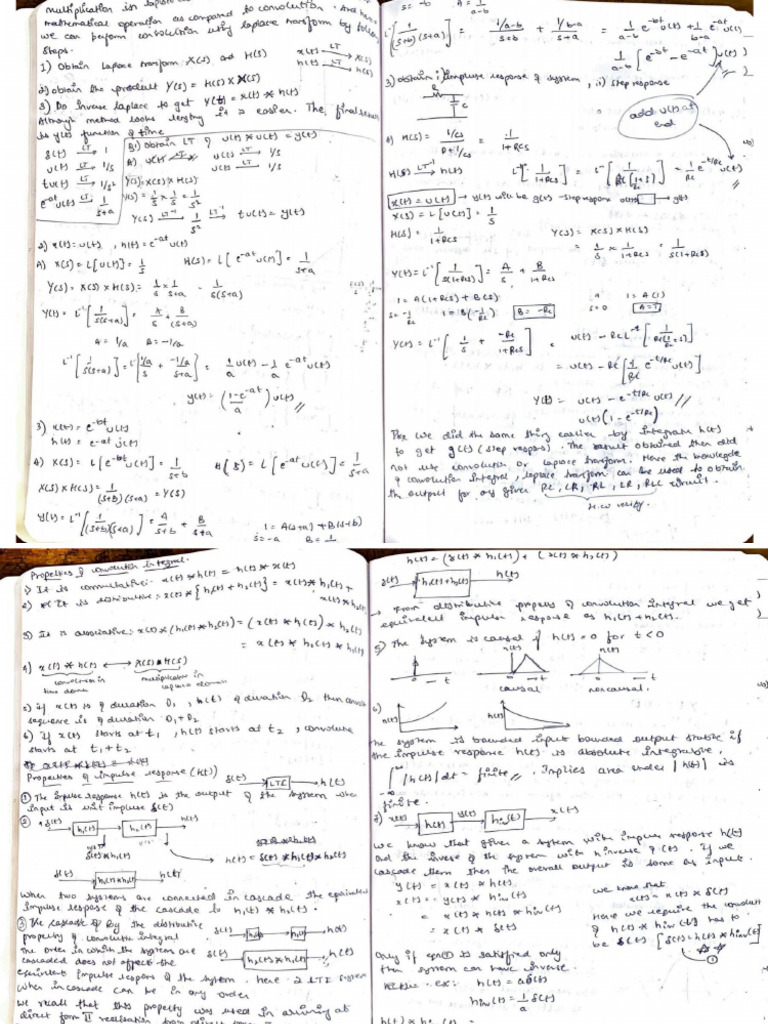 multiplication is
mathematical operation as compared to convolution. And hence
we can perform convolution using laplace transform by following
steps.
1) Obtain Laplace transform X(s) and H(s) x(t) LT→ X(s)
h(t) LT→ H(s)
2) obtain the product Y(s) = H(s) X X(s)
3) Do inverse laplace to get y(t) = x(t) * h(t)
Although method looks lengthy it is easier. The final
is y(t) function of time
δ(t) LT→ 1
u(t) LT→ 1/s
tu(t) LT→ 1/s²
e^-at u(t) LT→ 1/(s+a)
Q1) Obtain LT of u(t) * u(t) = y(t)
A) u(t) LT→ 1/s
u(t) LT→ 1/s
Y(s) = X(s) X H(s)
Y(s) = 1/s x 1/s = 1/s²
Y(s) LT⁻¹→ 1/s² LT⁻¹→ tu(t) = y(t)
2) x(t) = u(t) , h(t) = e^-at u(t)
A) X(s) = L[u(t)] = 1/s H(s) = L[e^-at u(t)] = 1/(s+a)
Y(s) = X(s) X H(s) = 1/s x 1/(s+a) = 1/s(s+a)
Y(t) = L⁻¹[1/s(s+a)] = A/s + B/(s+a)
A = 1/a B = -1/a
L⁻¹[1/s(s+a)] = L⁻¹[(1/a)/s + (-1/a)/(s+a)] = 1/a u(t) - 1/a e^-at u(t)
y(t) = ((1-e^-at)/a) u(t) //
3) x(t) = e^-bt u(t)
h(t) = e^-at u(t)
4) X(s) = L[e^-bt u(t)] = 1/(s+b) H(s) = L[e^-at u(t)] = 1/(s+a)
X(s) X H(s) = 1/(s+b)(s+a) = Y(s)
y(t) = L⁻¹[1/(s+b)(s+a)] = A/(s+b) + B/(s+a) 1 = A(s+a) + B(s+b)
s = -a B = 1/
s = -b A = 1/(a-b)
L⁻¹[1/(s+b)(s+a)] = (1/a-b)/(s+b) + (1/b-a)/(s+a) = 1/(a-b) e^-bt u(t) + 1/(b-a) e^-at u(t)
1/(a-b) [e^-bt - e^-at] u(t)
3) obtain i) impulse response of system, ii) step response
R
C
add u(t) at end
A) H(s) = (1/Cs)/(R+1/Cs) = 1/(1+RCs)
H(s) LT⁻¹→ h(t) L⁻¹[1/(1+RCs)] = L⁻¹[1/RC[1/RC+s]] = 1/RC e^-t/RC u(t) //
x(t) = u(t) → y(t) will be g(t) - step response u(t) → g(t)
X(s) = L[u(t)] = 1/s
H(s) = 1/(1+RCs) Y(s) = X(s) X H(s)
= 1/s x 1/(1+RCs) = 1/s(1+RCs)
Y(t) = L⁻¹[1/s(1+RCs)] = A/s + B/(1+RCs)
1 = A(1+RCs) + B(s) 1 = A(1)
s = -1/RC 1 = B(-1/RC) B = -RC s=0 A = 1
Y(t) = L⁻¹[1/s + -RC/(1+RCs)] = u(t) - RC L⁻¹[1/RC(1/RC+s)]
= u(t) - RC[1/RC e^-t/RC u(t)]
Y(t) = u(t) - e^-t/RC u(t) //
u(t)(1 - e^-t/RC)
we did the same thing earlier by integrating h(t)
to get g(t) (step response). The result obtained then did
not use convolution or laplace transform. Hence the knowledge
of convolution integral, laplace transform can be used to obtain
the output for any given RC, CR, RL, LR, RLC circuit.
H.W verify.
Properties of convolution integral
1) It is commutative: x(t) * h(t) = h(t) * x(t)
2) It is distributive: x(t) * [h₁(t) + h₂(t)] = x(t) * h₁(t) +
x(t) * h₂(t)
3) It is associative: x(t) * (h₁(t) * h₂(t)) = (x(t) * h₁(t)) * h₂(t)
= x(t) * h₁(t) * h₂(t)
4) x(t) * h(t) ⟷ X(s) X H(s)
convolution in time domain multiplication in laplace domain
5) if x(t) is of duration D₁, h(t) of duration D₂ then convolution
sequence is of duration D₁+D₂
6) if x(t) starts at t₁, h(t) starts at t₂, convolution
starts at t₁+t₂
Properties of impulse response (h(t)) δ(t) → LTI → h(t)
① The impulse response h(t) is the output of the system when
input is unit impulse δ(t)
② δ(t) → h₁(t) → h₂(t) → h(t)
δ(t) * h₁(t) h(t) = δ(t) * h₁(t) * h₂(t)
δ(t) → h₁(t) * h₂(t) → h(t)
When two systems are connected in cascade the equivalent
impulse response of the cascade is h₁(t) * h₂(t).
③ By the distributive
property of convolution integral
the order in which the system are
cascaded does not affect the
equivalent impulse response of the system. Hence 2 LTI system
when in cascade can be in any order
δ(t) → h₂(t) → h₁(t) → h(t)
δ(t) → h₂(t) * h₁(t) → h(t)
We recall that this property was used in arriving at
direct form II realisation from direct form
h(t) = (δ(t) * h₁(t)) + (δ(t) * h₂(t))
δ(t) → h₁(t) + h₂(t) → h(t)
→ From distributive property of convolution integral we get
equivalent impulse response as h₁(t) + h₂(t).
5) The system is causal if h(t) = 0 for t < 0
h(t) h(t)
0 → t 0 → t 0 → t
causal noncausal
6) h(t) h(t)
The system is bounded input bounded output stable if
the impulse response h(t) is absolute integrable.
∫ |h(t)| dt = finite //. Implies area under |h(t)| is
-∞
finite.
7) x(t) → h(t) → y(t) → hinv(t) → x(t)
We know that given a system with impulse response h(t)
and the inverse of the system with hinverse of (t). If we
cascade them then the overall output is same as input.
y(t) = x(t) * h(t)
x(t) = y(t) * hinv(t)
= x(t) * h(t) * hinv(t)
= x(t) * δ(t)
we know that
x(t) = x(t) * δ(t)
Here we require the convolution
of h(t) * hinv(t) has to
be δ(t) [δ(t) = h(t) * hinv(t)]
①
Only if eq ① is satisfied only
then system can have inverse.
ex: h(t) = aδ(t)
hinv(t) = 1/a δ(t)